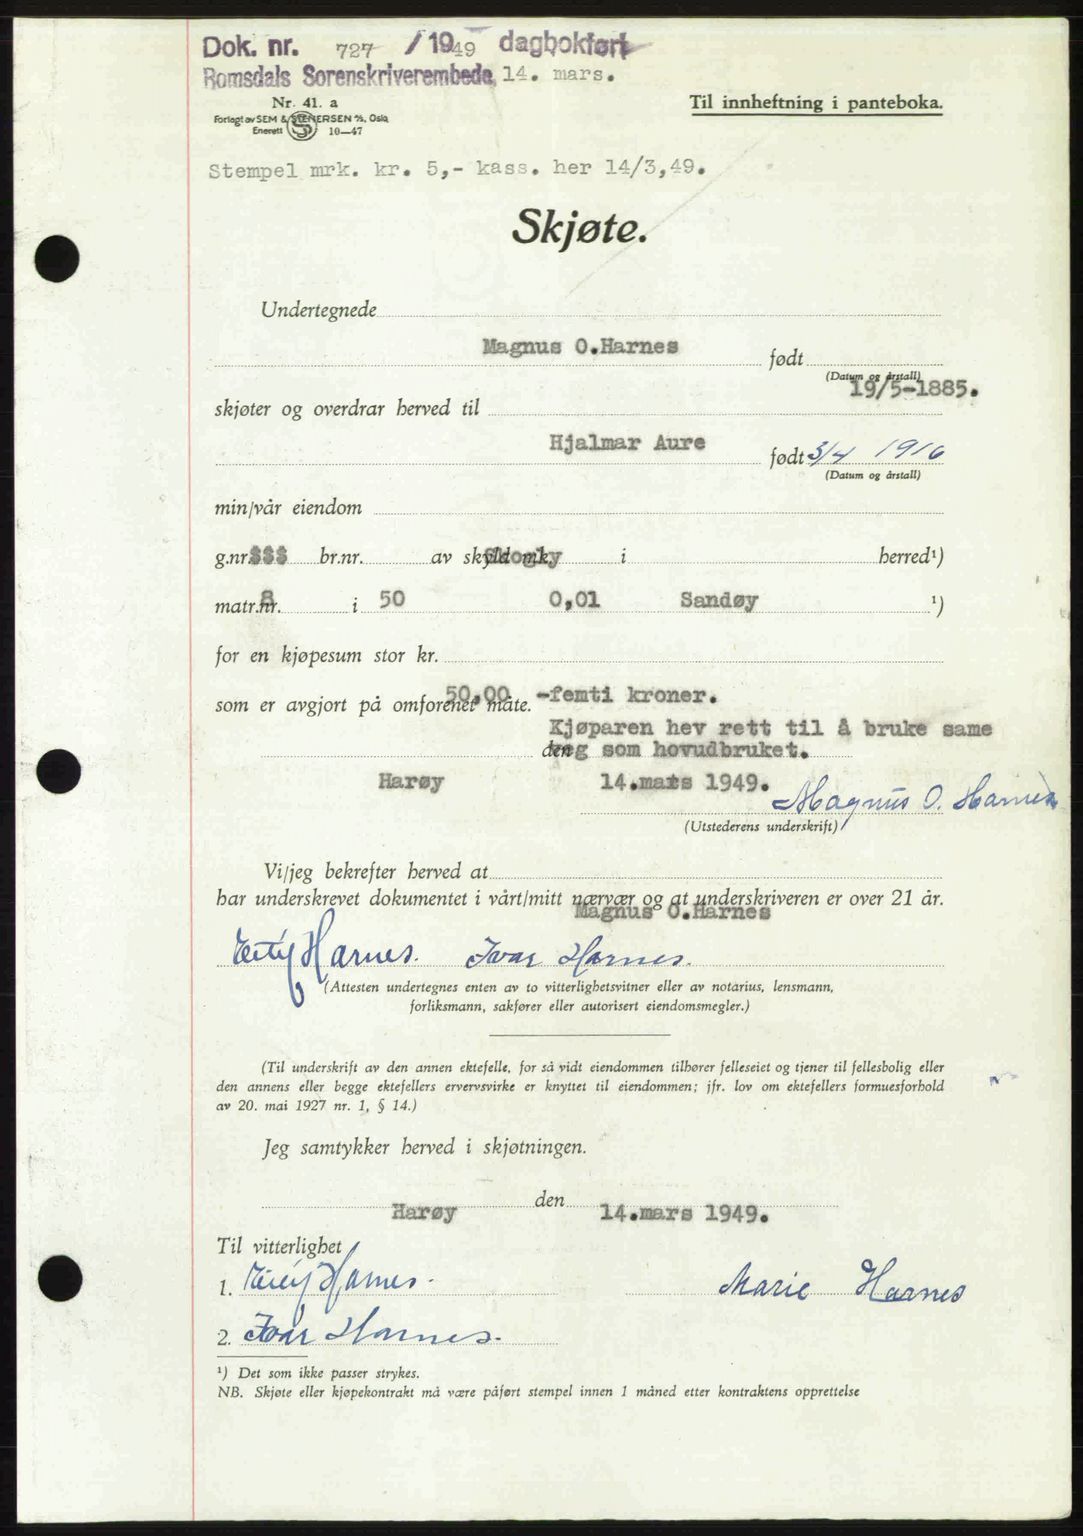 Dok. nr. 727 / 1949 dagbokført
Romsdals Sorenskriverembede 14. mars.
Nr. 41. a
Forlagt av SEM & STENERSEN A/S, Oslo
Enerett 10—47
Til innheftning i panteboka.
Stempel mrk. kr. 5,- kass. her 14/3,49.
Skjøte.
Undertegnede
Magnus O.Harnes født
(Datum og årstall)
19/5-1885.
skjøter og overdrar herved til
Hjalmar Aure født 3/4 1916
(Datum og årstall)
min/vår eiendom
g.nr. br.nr. av skyld mk. i herred¹)
matr.nr. 8 i 50 0,01 Sandøy ¹)
for en kjøpesum stor kr.
som er avgjort på omforenet måte. 50,00 -femti kroner.
Kjøparen hev rett til å bruke same
den veg som hovudbruket.
Harøy 14.mars 1949.
Magnus O. Harnes
(Utstederens underskrift)
Vi/jeg bekrefter herved at
har underskrevet dokumentet i vårt/mitt nærvær og at underskriveren er over 21 år.
Magnus O.Harnes
Harnes. Ivar Harnes.
(Attesten undertegnes enten av to vitterlighetsvitner eller av notarius, lensmann,
forliksmann, sakfører eller autorisert eiendomsmegler.)
(Til underskrift av den annen ektefelle, for så vidt eiendommen tilhører felleseiet og tjener til fellesbolig eller
den annens eller begge ektefellers ervervsvirke er knyttet til eiendommen; jfr. lov om ektefellers formuesforhold
av 20. mai 1927 nr. 1, § 14.)
Jeg samtykker herved i skjøtningen.
Harøy den 14.mars 1949.
Til vitterlighet
1. Harnes. Marie Harnes
2. Ivar Harnes.
¹) Det som ikke passer strykes.
NB. Skjøte eller kjøpekontrakt må være påført stempel innen 1 måned etter kontraktens opprettelse